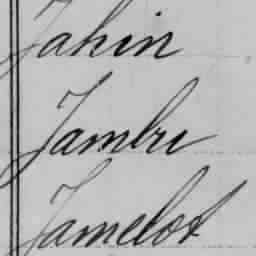 Jahin
Jambri
Jamelot